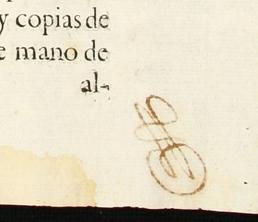 y copias de
e mano de
al-